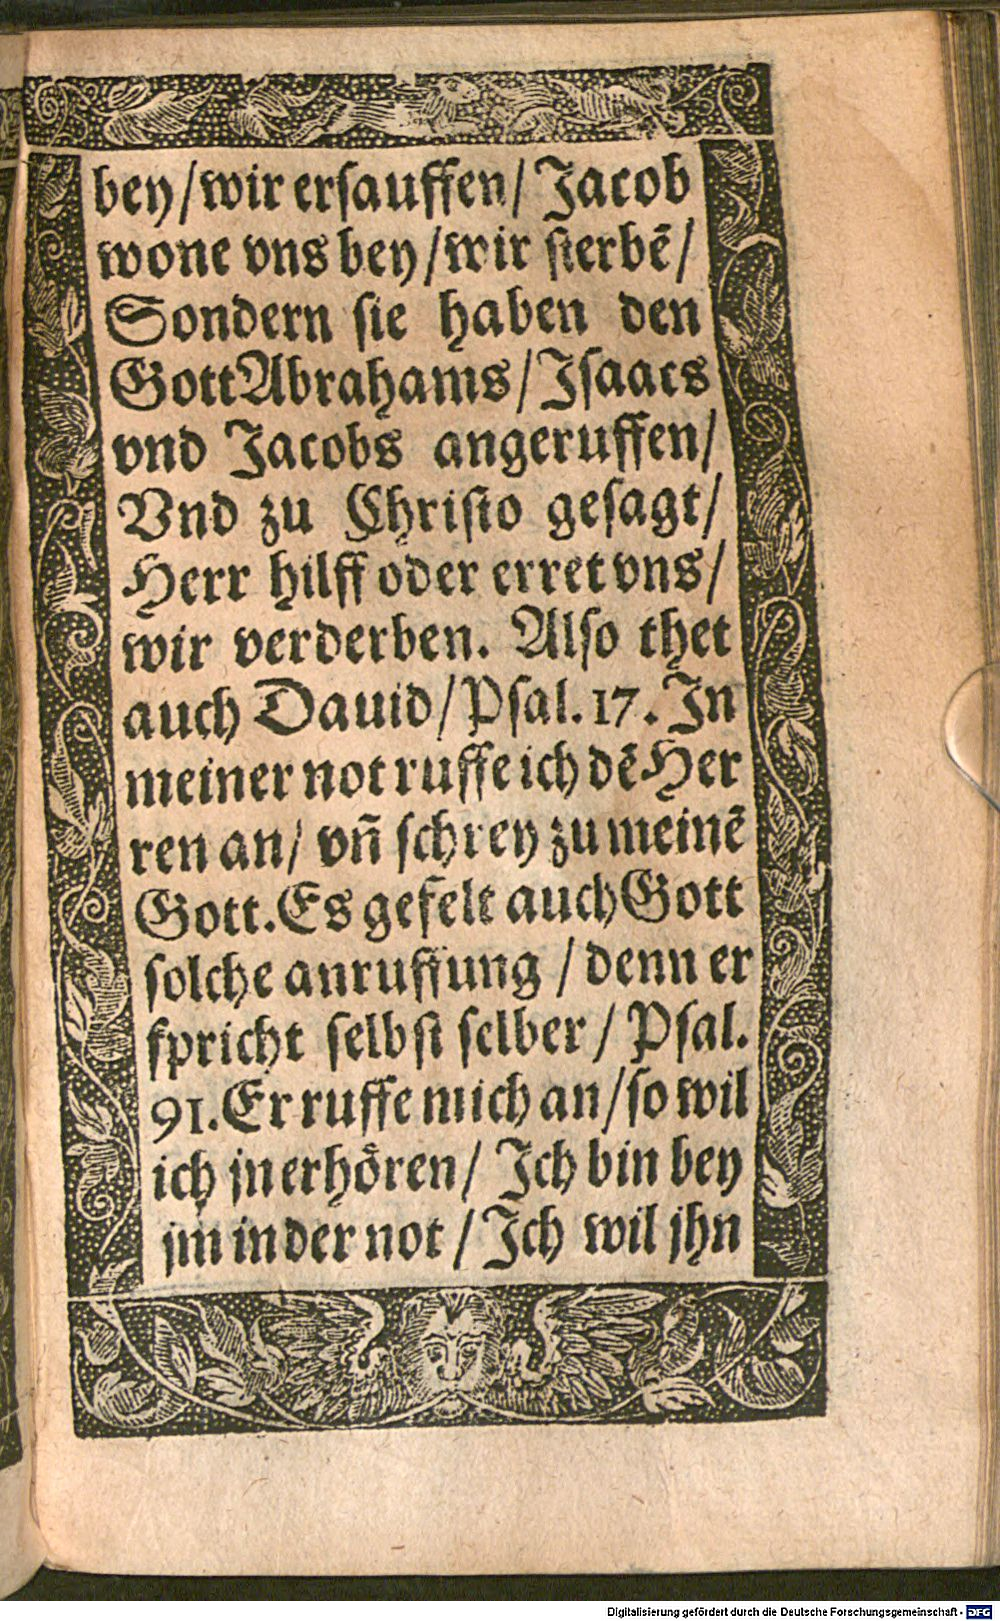 bey/wir ersauffen/ Jacob
wone vns bey/wir sterbẽ/
Sondern sie haben den
Gott Abrahams/Isaacs
vnd Jacobs angeruffen/
Vnd zu Christo gesagt/
Herr hilff oder erret vns/
wir verderben. Also thet
auch Dauid/Psal. 17. In
meiner not ruffe ich dẽ Her
ren an/ vñ schrey zu meinẽ
Gott. Es gefelt auch Gott
solche anruffung /denn er
spricht selbst selber/ Psal.
91. Er ruffe mich an/so wil
ich jn erhören/ Ich bin bey
jm in der not / Ich wil jhn
Digitalisierung gefördert durch die Deutsche Forschungsgemeinschaft - DFG